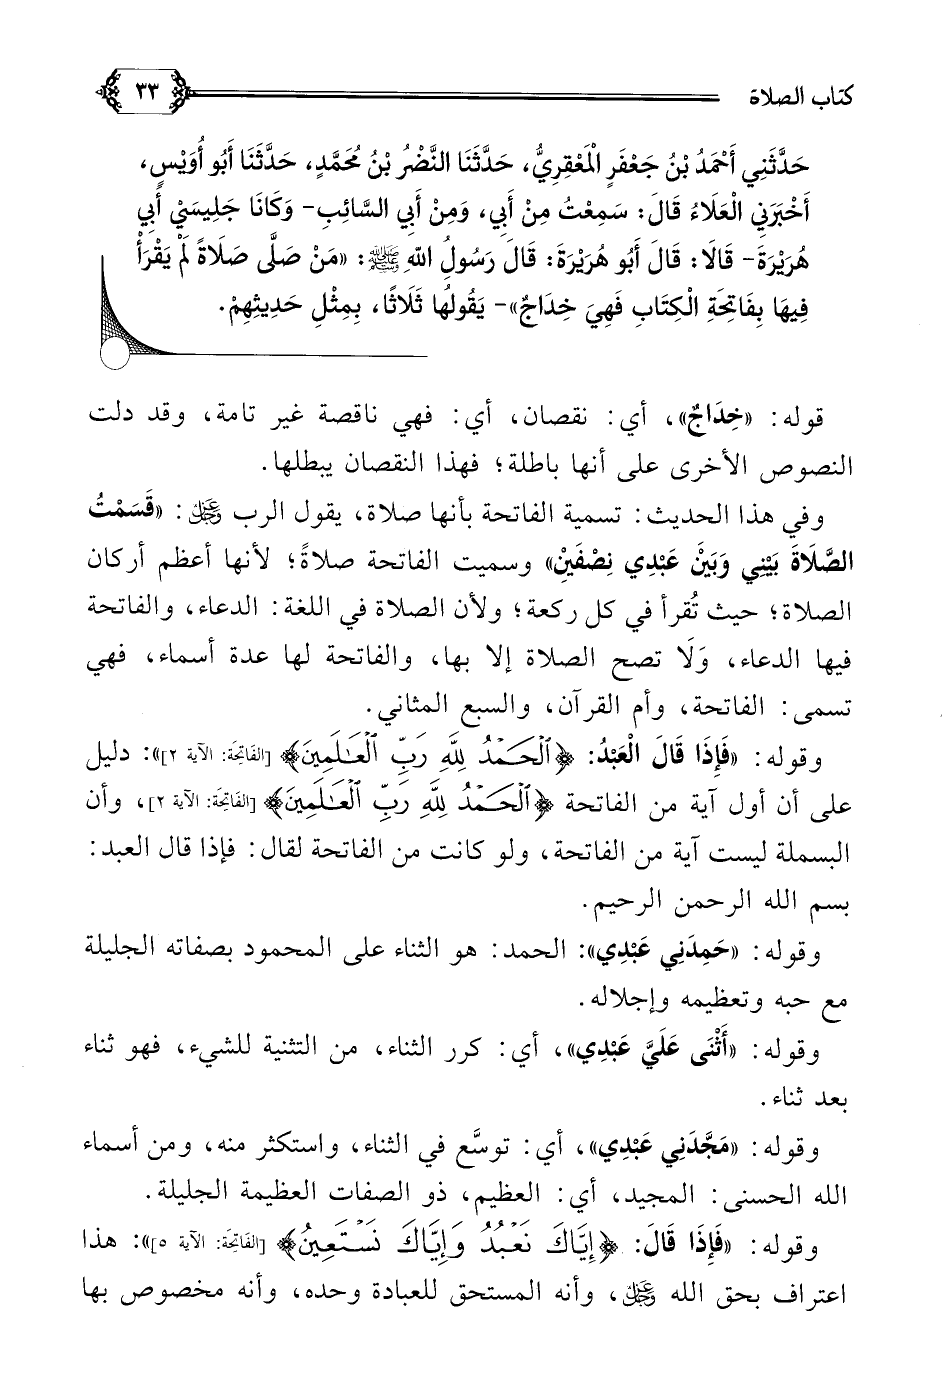 كتاب الصلاة ٣٣
حَدَّثَنِي أَحْمَدُ بْنُ جَعْفَرٍ الْمَعْقِرِيُّ، حَدَّثَنَا النَّضْرُ بْنُ مُحَمَّدٍ، حَدَّثَنَا أَبُو أُوَيْسٍ،
أَخْبَرَنِي الْعَلَاءُ قَالَ: سَمِعْتُ مِنْ أَبِي، وَمِنْ أَبِي السَّائِبِ- وَكَانَا جَلِيسَيْ أَبِي
هُرَيْرَةَ- قَالَا: قَالَ أَبُو هُرَيْرَةَ: قَالَ رَسُولُ اللهِ ﷺ: «مَنْ صَلَّى صَلَاةً لَمْ يَقْرَأْ
فِيهَا بِفَاتِحَةِ الْكِتَابِ فَهِيَ خِدَاجٌ»- يَقُولُهَا ثَلَاثًا، بِمِثْلِ حَدِيثِهِمْ.
قوله: «خِدَاجٌ»، أي: نقصان، أي: فهي ناقصة غير تامة، وقد دلت
النصوص الأخرى على أنها باطلة؛ فهذا النقصان يبطلها.
وفي هذا الحديث: تسمية الفاتحة بأنها صلاة، يقول الرب عز وجل: «قَسَمْتُ
الصَّلَاةَ بَيْنِي وَبَيْنَ عَبْدِي نِصْفَيْنِ» وسميت الفاتحة صلاةً؛ لأنها أعظم أركان
الصلاة؛ حيث تُقرأ في كل ركعة؛ ولأن الصلاة في اللغة: الدعاء، والفاتحة
فيها الدعاء، وَلَا تصح الصلاة إلا بها، والفاتحة لها عدة أسماء، فهي
تسمى: الفاتحة، وأم القرآن، والسبع المثاني.
وقوله: «فَإِذَا قَالَ الْعَبْدُ: ﴿ٱلْحَمْدُ لِلَّهِ رَبِّ ٱلْعَـٰلَمِينَ﴾ [الفَاتِحَة: الآية ٢]»: دليل
على أن أول آية من الفاتحة ﴿ٱلْحَمْدُ لِلَّهِ رَبِّ ٱلْعَـٰلَمِينَ﴾ [الفَاتِحَة: الآية ٢]، وأن
البسملة ليست آية من الفاتحة، ولو كانت من الفاتحة لقال: فإذا قال العبد:
بسم الله الرحمن الرحيم.
وقوله: «حَمِدَنِي عَبْدِي»: الحمد: هو الثناء على المحمود بصفاته الجليلة
مع حبه وتعظيمه وإجلاله.
وقوله: «أَثْنَى عَلَيَّ عَبْدِي»، أي: كرر الثناء، من التثنية للشيء، فهو ثناء
بعد ثناء.
وقوله: «مَجَّدَنِي عَبْدِي»، أي: توسَّع في الثناء، واستكثر منه، ومن أسماء
الله الحسنى: المجيد، أي: العظيم، ذو الصفات العظيمة الجليلة.
وقوله: «فَإِذَا قَالَ: ﴿إِيَّاكَ نَعْبُدُ وَإِيَّاكَ نَسْتَعِينُ﴾ [الفَاتِحَة: الآية ٥]»: هذا
اعتراف بحق الله عز وجل، وأنه المستحق للعبادة وحده، وأنه مخصوص بها